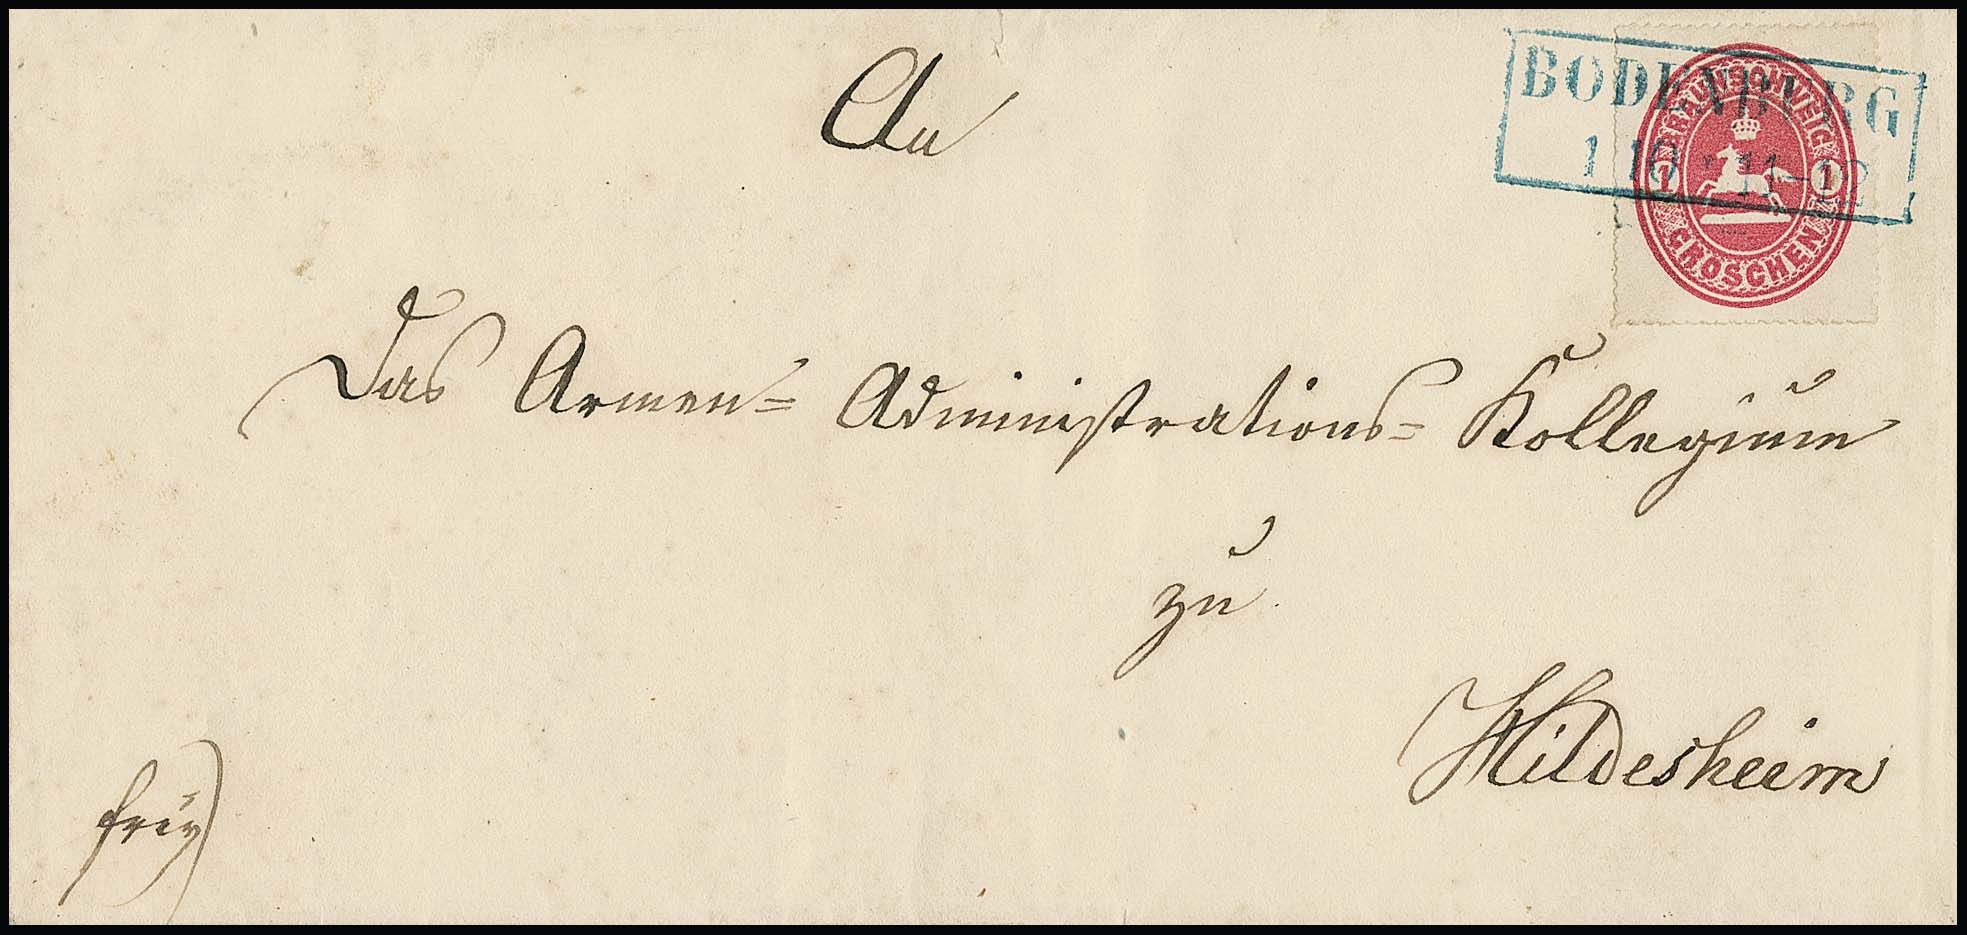 An
BODENBURG
1 10 * 11-12
BRAUNSCHWEIG
1 1
GROSCHEN
das Armen= Administrations= Kollegium
zu
Hildesheim
frey